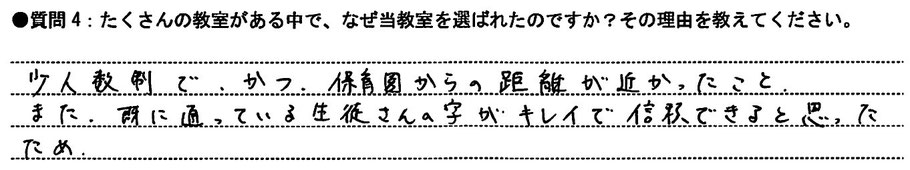 ●質問4：たくさんの教室がある中で、なぜ当教室を選ばれたのですか？その理由を教えてください。
少人数制で、かつ、保育園からの距離が近かったこと。
また、既に通っている生徒さんの字がキレイで信頼できると思った
ため。